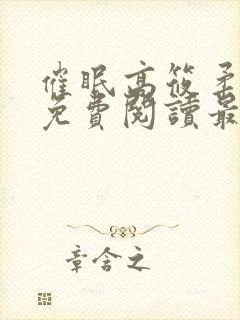 催眠高筱柔
免費閱讀最
章含之